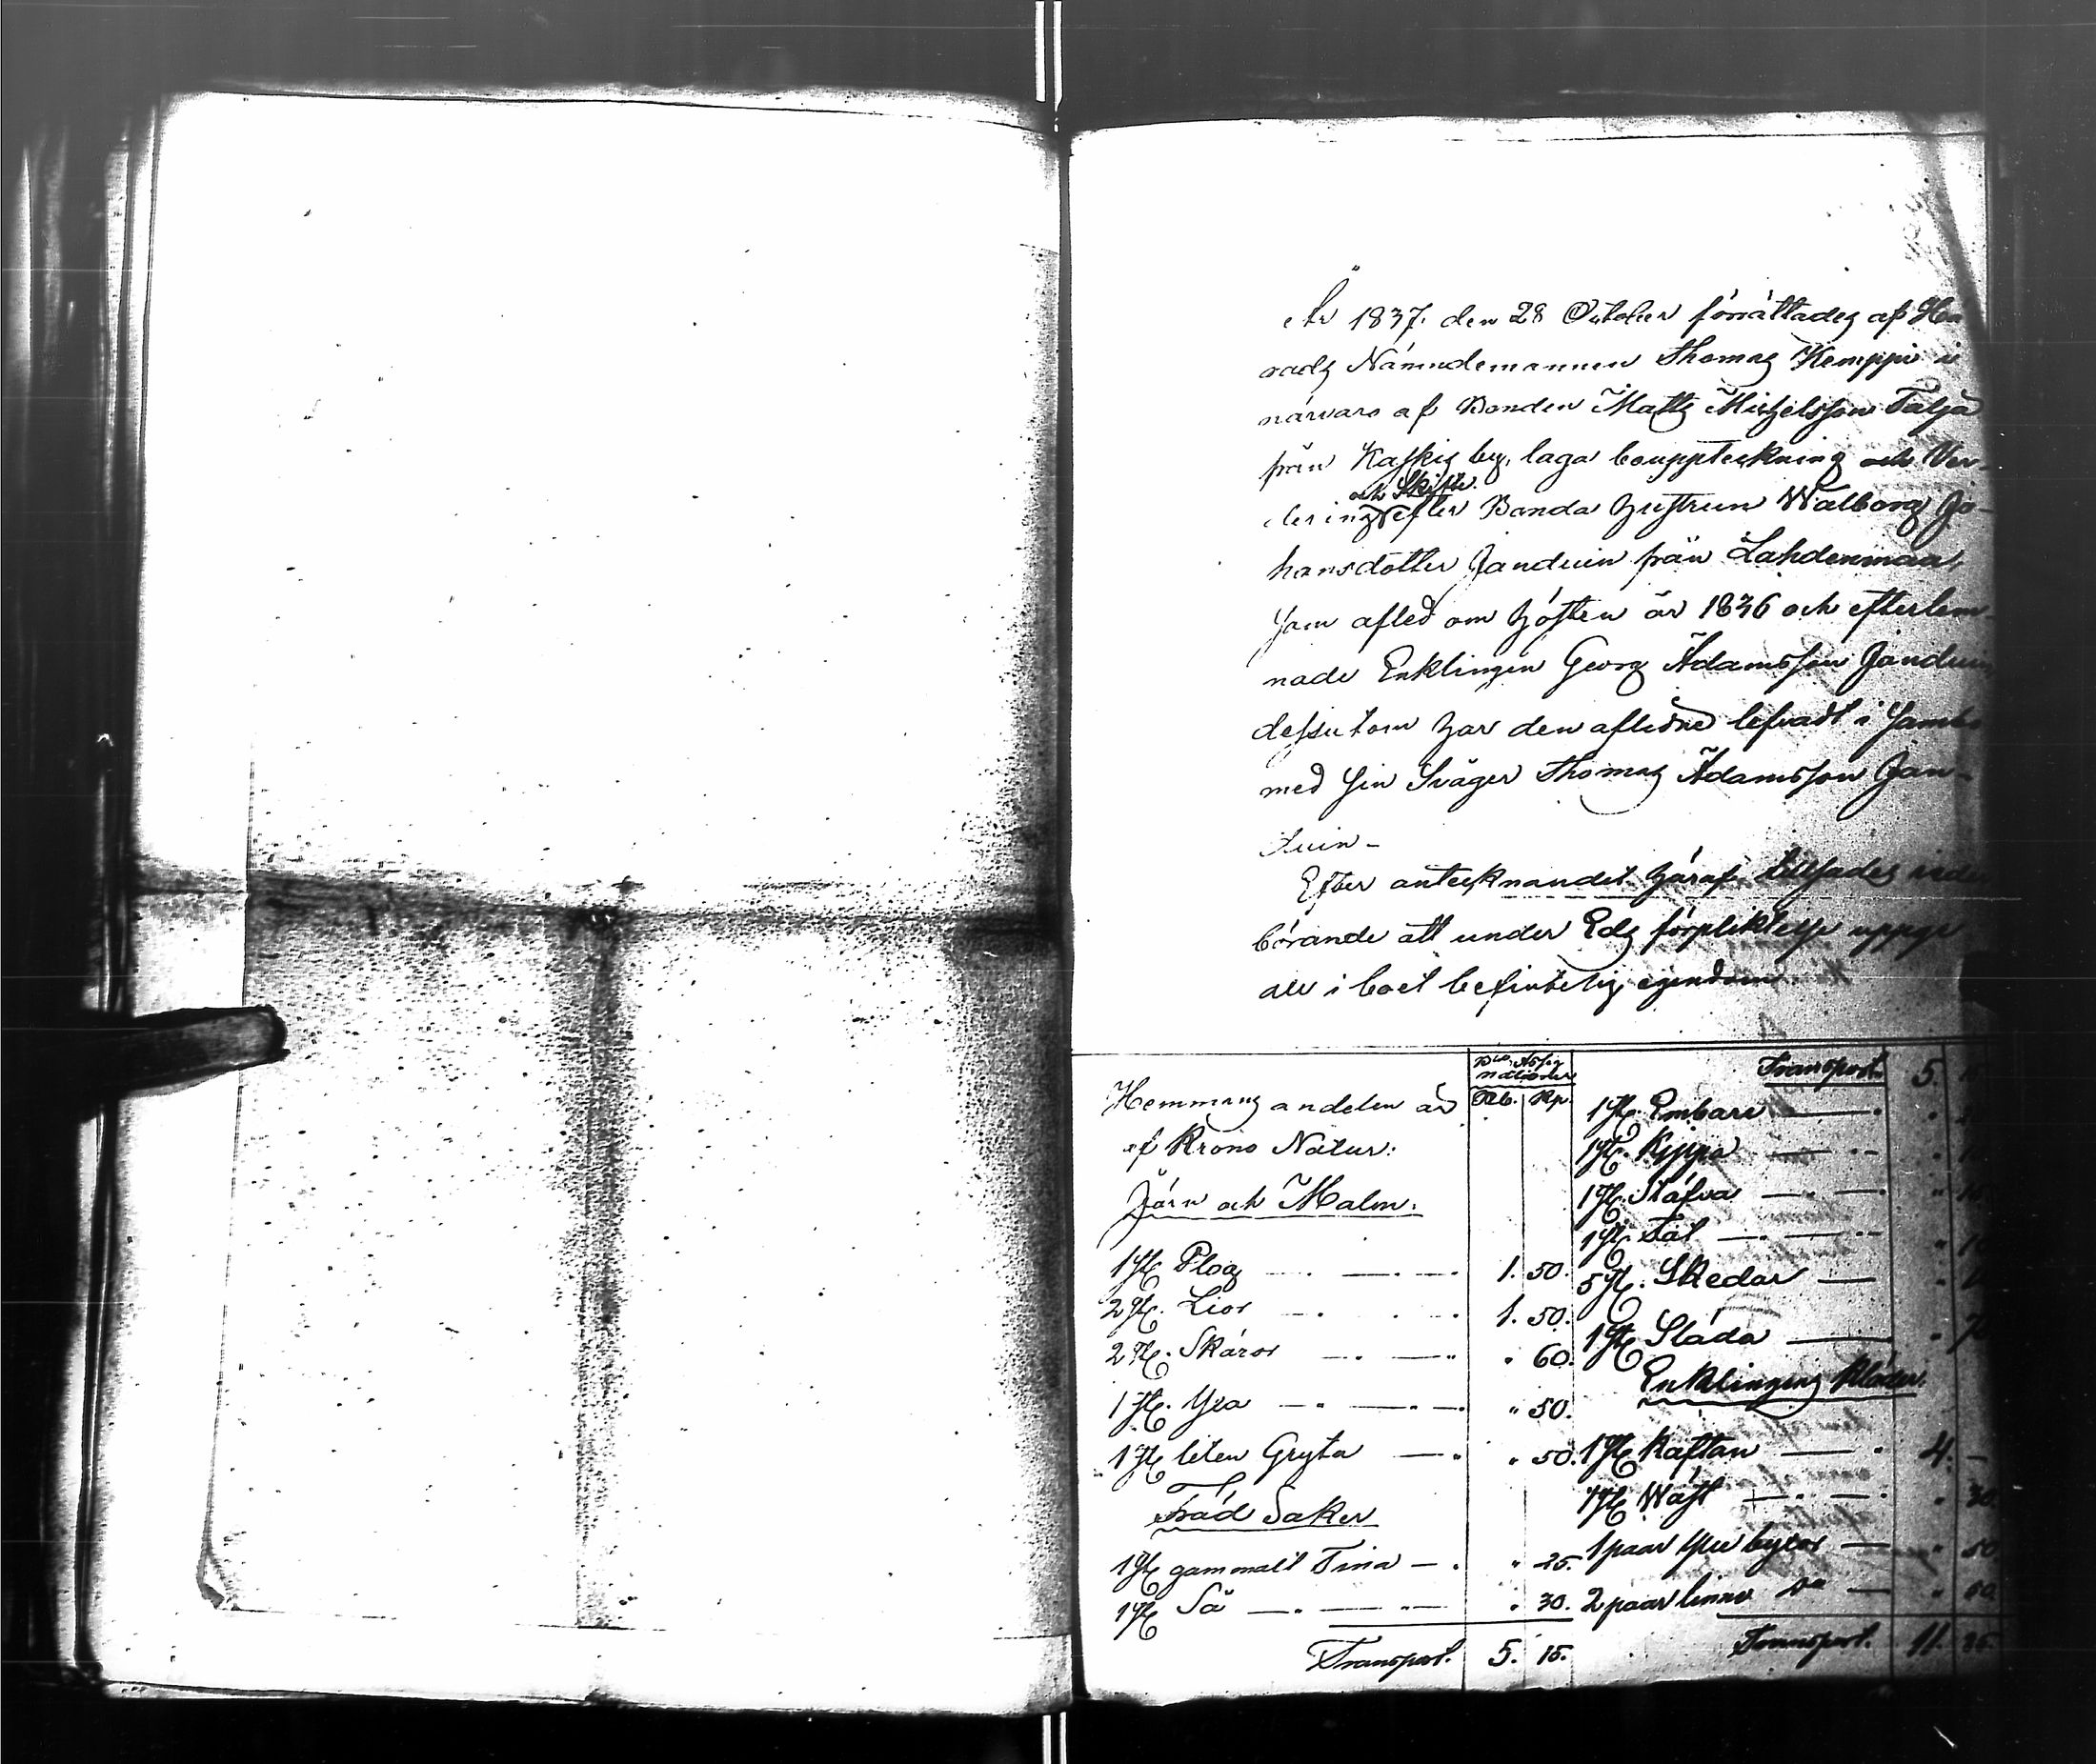 År 1837. den 28 October förrättades af Hä
rads Nämndemannen Thomas Kemppi i
närvaro af Bonden Matts Michelsson Talja
från Kaskis by, laga bouppteckning och Vär-
och Skifte.
dering efter Bonda hustrun Walborg Jo-
hansdotter Janduin från Lahdenmaa,
som afled om hösten år 1836 och efterlem-
nade Enklingen Georg Adamsson Janduin
dessutom har den aflidne lefvadt i Sambo
med sin Svåger Thomas Adamsson Jan-
duin -
Efter antecknandet häraf tillsades veder
börande att under Eds förpliktelse uppge
all i boet befintelig egendom

Bco Assig
nationer
Rb. Kp.
Hemmans andelen är
af Krono Natur:
Järn och Malm.
1 st Plog 1. 50.
2 st. Lior 1. 50.
2 st. Skäror " 60.
1 st. Yxa " 50.
1 st liten Gryta " 50.
Träd Saker
1 st gammalt Tina " 25.
1 st Så " 30.
Transport. 5. 15.

Transport. 5.
1 st. Embare
1 st. Kippa
1 st. Stäfva " 15
1 st. Fat
5 st. Skedar
1 st Släda
Enklingens kläder.
1 st Kaftan 4. -
1 st Wäst " 30.
1 paar byxor " 50
2 paar linne Do " 60.
Transport. 11.